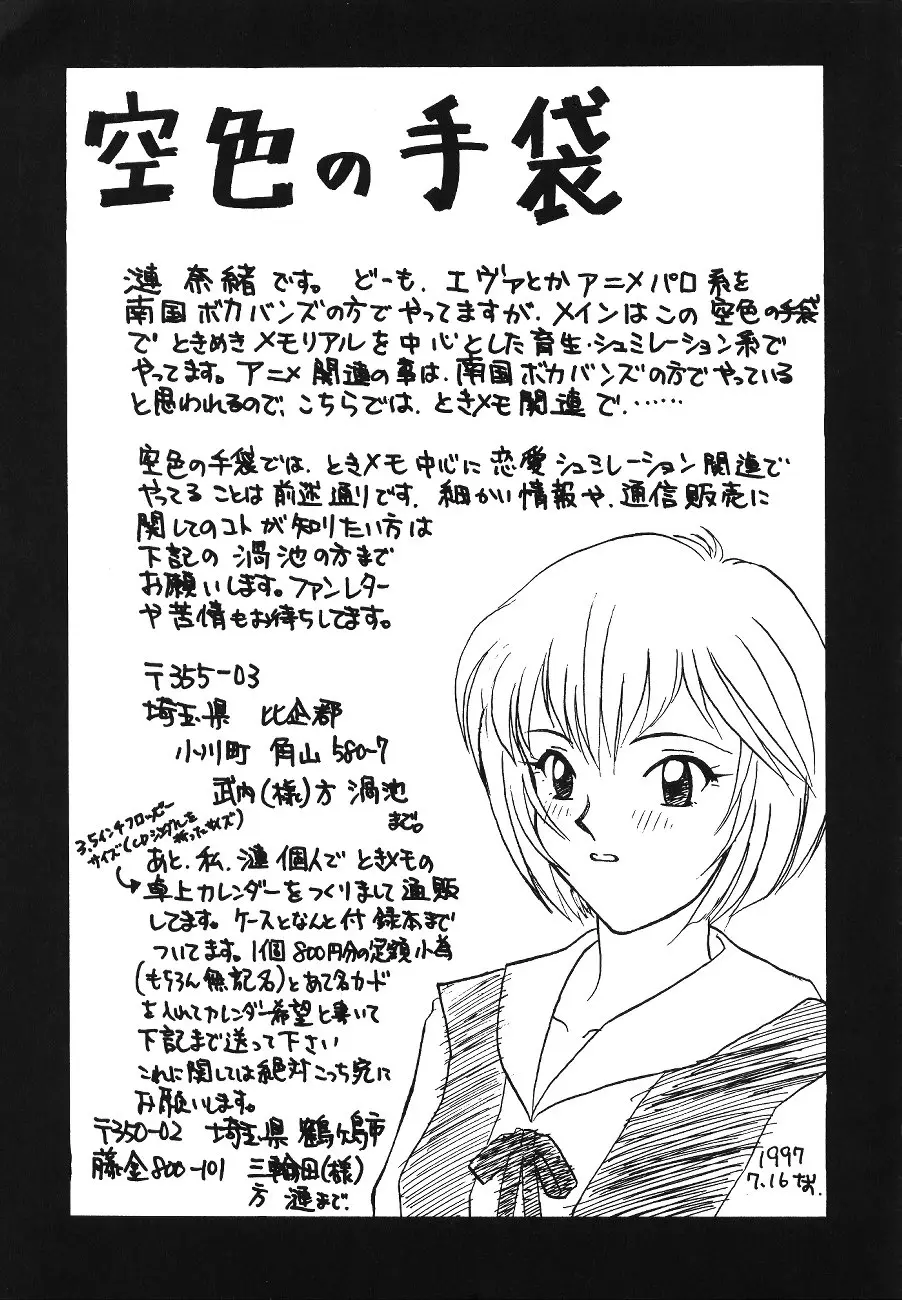 空色の手袋
漣 奈緒です。どーも、エヴァとかアニメパロ系を
南国ボカバンズの方でやってますが、メインはこの空色の手袋
でときめきメモリアルを中心とした育生・シュミレーション系で
やってます。アニメ関連の事は、南国ボカバンズの方でやっている
と思われるので、こちらでは、ときメモ関連で、……
空色の手袋では、ときメモ中心に恋愛シュミレーション関連で
やってることは前述通りです。細かい情報や、通信販売に
関してのコトが知りたい方は
下記の渦池の方まで
お願いします。ファンレター
や苦情もお待ちしてます。
〒355-03
埼玉県 比企郡
小川町 角山580-7
武内(様)方 渦池
まで。
3.5インチフロッピー
サイズ(CDシングルを
折ったサイズ)
あと、私、漣個人でときメモの
卓上カレンダーをつくりまして通販
してます。ケースとなんと付録本まで
ついてます。1個800円分の定額小為
(もちろん無記名)とあて名カード
を入れてカレンダー希望と書いて
下記まで送って下さい
これに関しては絶対こっち宛に
お願いします。
〒350-02 埼玉県鶴ヶ島市
藤金800-101 三輪田(様)
方 漣まで。
1997
7.16 なお.